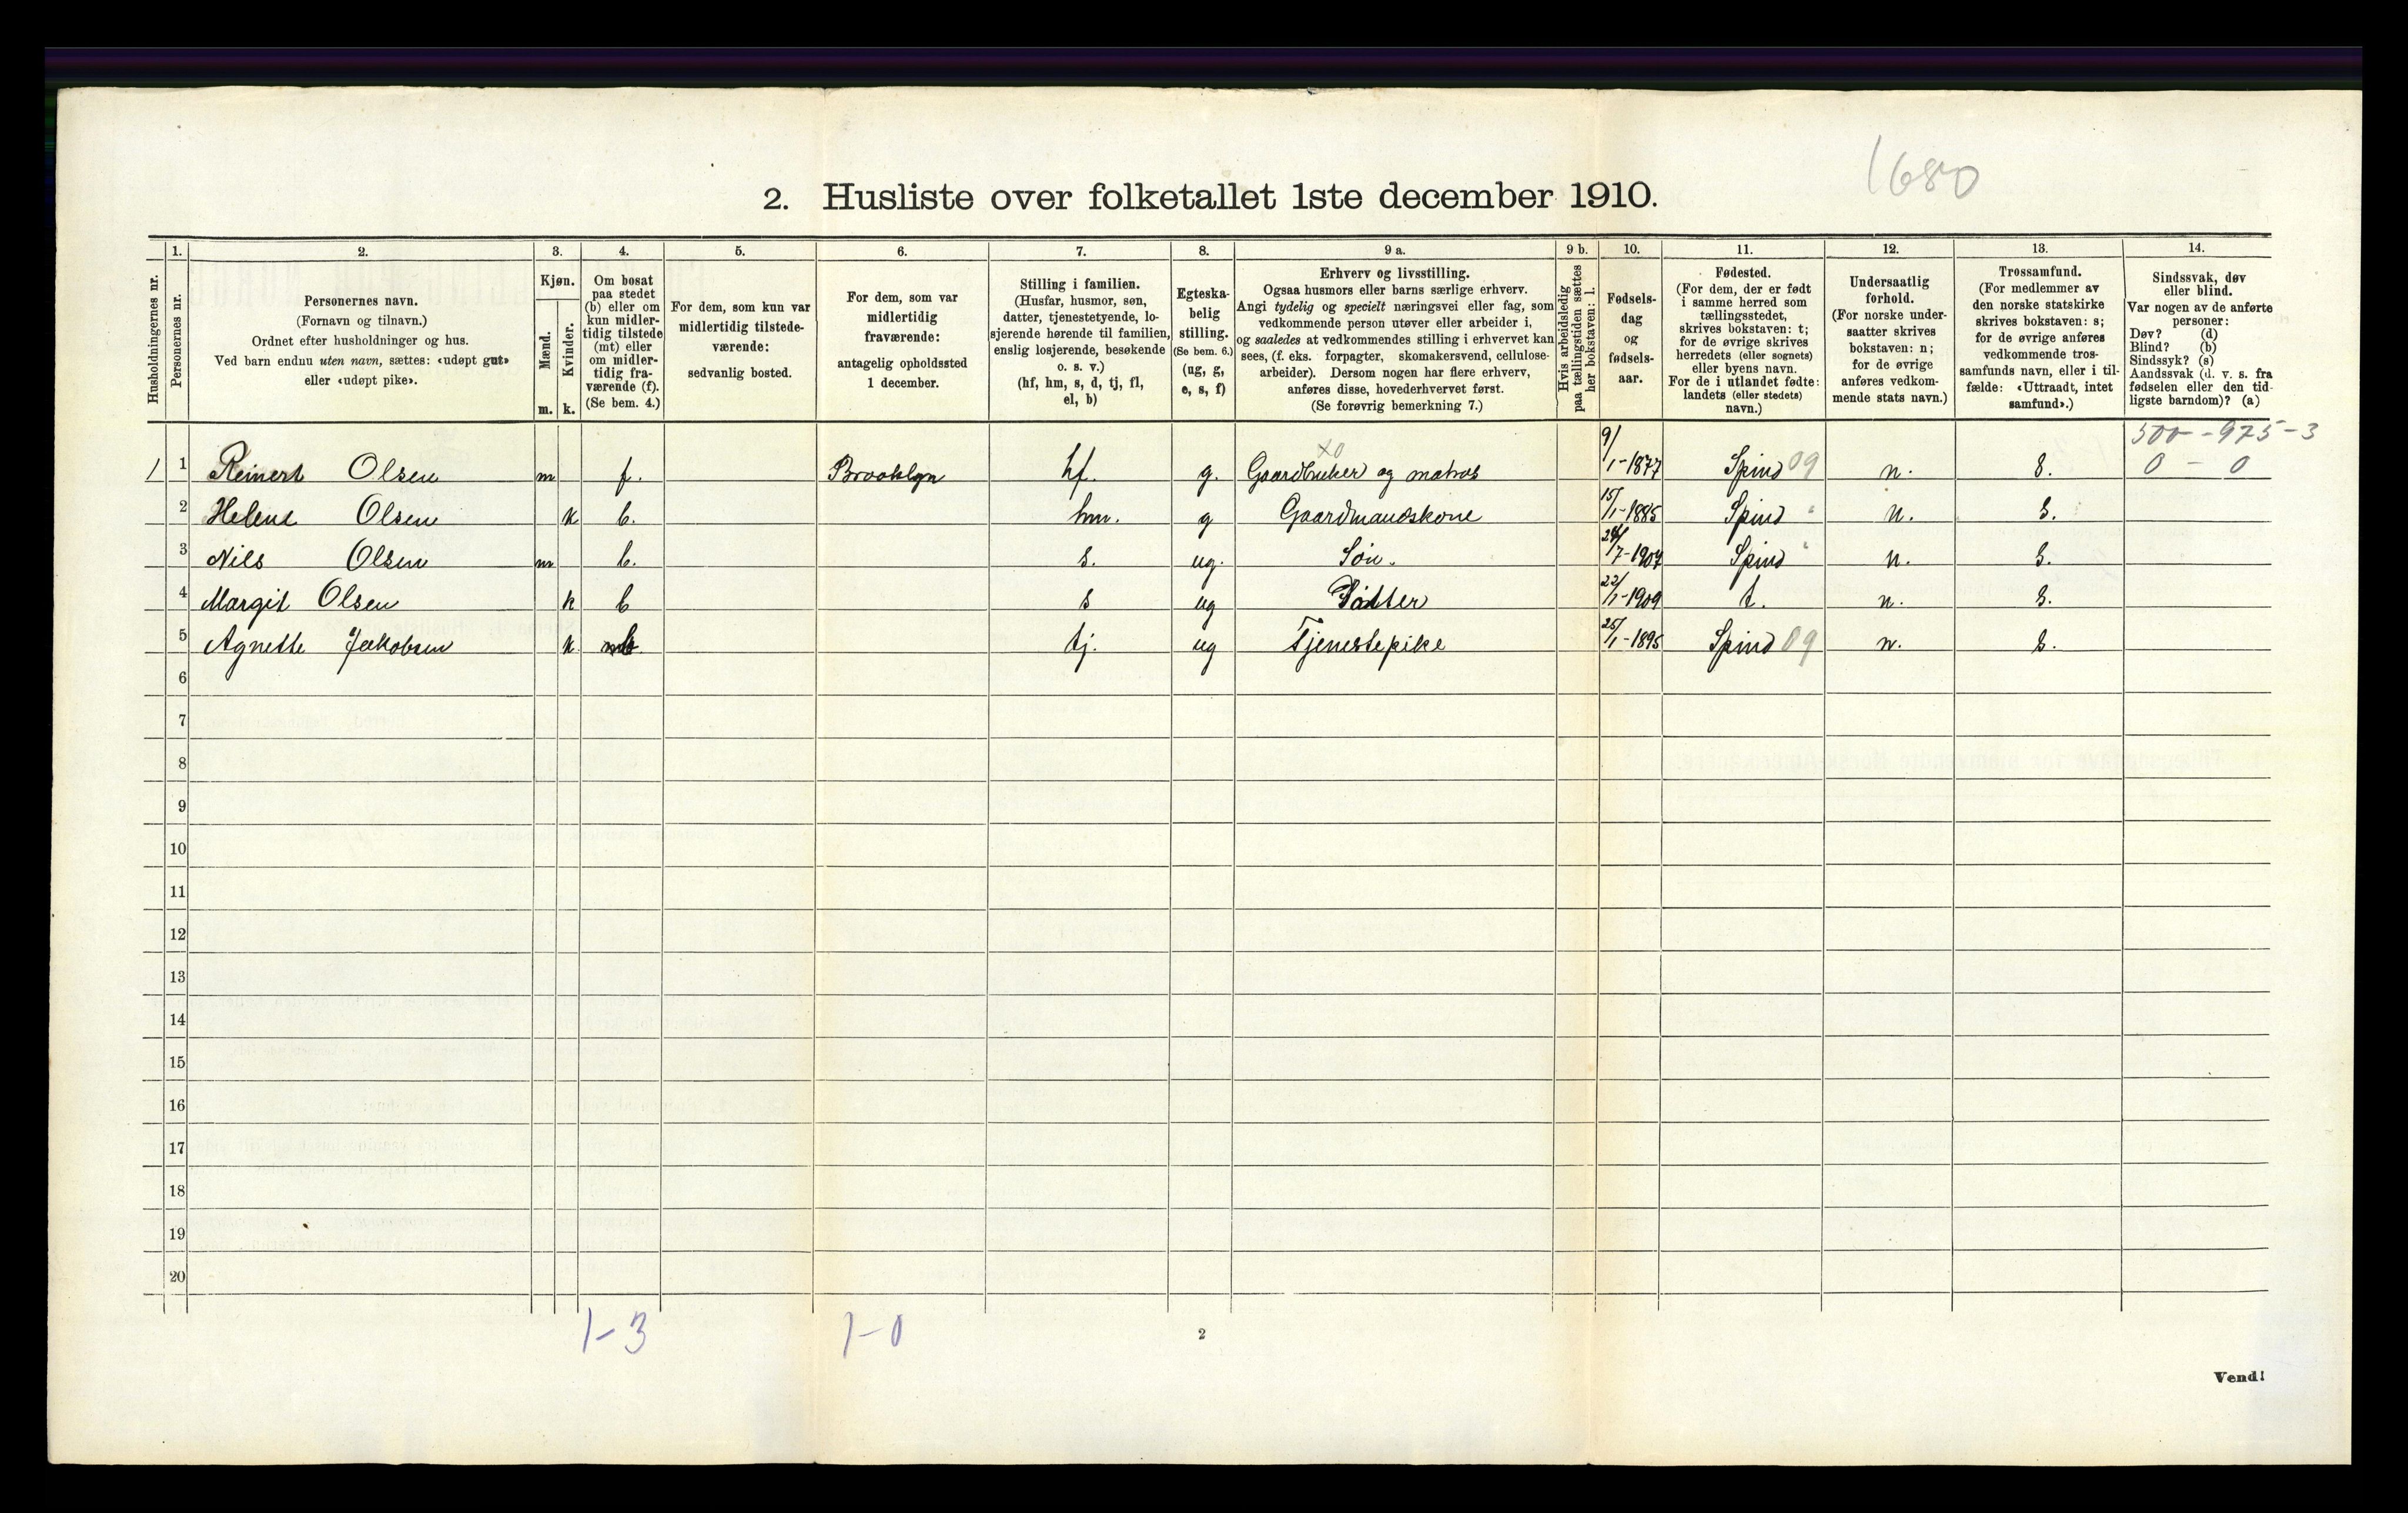 1680
2. Husliste over folketallet 1ste december 1910.
Husholdningernes nr.
1.
Personernes nr.
2.
Personernes navn.
(Fornavn og tilnavn.)
Ordnet efter husholdninger og hus.
Ved barn endnu uten navn, sættes: «udøpt gut»
eller «udøpt pike».
3.
Kjøn.
Mænd.
Kvinder.
m. k.
4.
Om bosat
paa stedet
(b) eller om
kun midler-
tidig tilstede
(mt) eller
om midler-
tidig fra-
værende (f).
(Se bem. 4.)
5.
For dem, som kun var
midlertidig tilstede-
værende:
sedvanlig bosted.
6.
For dem, som var
midlertidig
fraværende:
antagelig opholdssted
1 december.
7.
Stilling i familien.
(Husfar, husmor, søn,
datter, tjenestetyende, lo-
sjerende hørende til familien,
enslig losjerende, besøkende
o. s. v.)
(hf, hm, s, d, tj, fl,
el, b)
8.
Egteska-
belig
stilling.
(Se bem. 6.)
(ug, g,
e, s, f)
9 a.
Erhverv og livsstilling.
Ogsaa husmors eller barns særlige erhverv.
Angi tydelig og specielt næringsvei eller fag, som
vedkommende person utøver eller arbeider i,
og saaledes at vedkommendes stilling i erhvervet kan
sees, (f. eks. forpagter, skomakersvend, cellulose-
arbeider). Dersom nogen har flere erhverv,
anføres disse, hovederhvervet først.
(Se forøvrig bemerkning 7.)
9 b.
Hvis arbeidsledig
paa tællingstiden sættes
her bokstaven: l.
10.
Fødsels-
dag
og
fødsels-
aar.
11.
Fødested.
(For dem, der er født
i samme herred som
tællingsstedet,
skrives bokstaven: t;
for de øvrige skrives
herredets (eller sognets)
eller byens navn.
For de i utlandet fødte:
landets (eller stedets)
navn.)
12.
Undersaatlig
forhold.
(For norske under-
saatter skrives
bokstaven: n;
for de øvrige
anføres vedkom-
mende stats navn.)
13.
Trossamfund.
(For medlemmer av
den norske statskirke
skrives bokstaven: s;
for de øvrige anføres
vedkommende tros-
samfunds navn, eller i til-
fælde: «Uttraadt, intet
samfund».)
14.
Sindssvak, døv
eller blind.
Var nogen av de anførte
personer:
Døv? (d)
Blind? (b)
Sindssyk? (s)
Aandssvak (d. v. s. fra
fødselen eller den tid-
ligste barndom)? (a)
500-975-3
X0
1 1 Reinert Olsen m f. Brooklyn hf. g. Gaardbruker og matros 9/1-1877 Spind 09 n. s. 0 - 0
2 Helene Olsen k b. hm. g Gaardmandskone 15/1-1885 Spind " n. s.
3 Nils Olsen m b. s. ug. Søn. 24/7-1907 Spind " n. s.
4 Margit Olsen k b s ug Datter 22/1-1909 t. n. s.
5 Agnette Jakobsen k b tj. ug Tjenestepike 25/1-1895 Spind 09 n. s.
6
7
8
9
10
11
12
13
14
15
16
17
18
19
20
1-3 1-0
2
Vend!